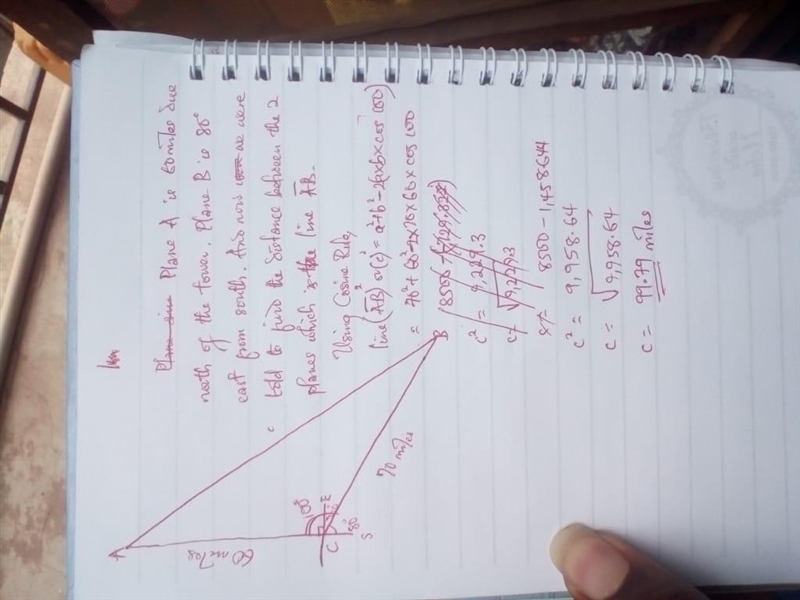 Plane A is 60 miles due
north of the tower. Plane B is 80°
east from south. And now we were
told to find the distance between the 2
planes which is the line AB.
Using Cosine Rule,
line(AB)² or(c)² = a²+b²-2axbx cos 100
= 70²+60²-2x70x60 x cos 100
8500
c² = 9,229.3
c= √9,229.3
8500 - 1,458.644
c² = 9,958.64
c = √9,958.64
c = 99.79 miles
A
60 miles
c
100°
C
E
80°
S
70 miles
B